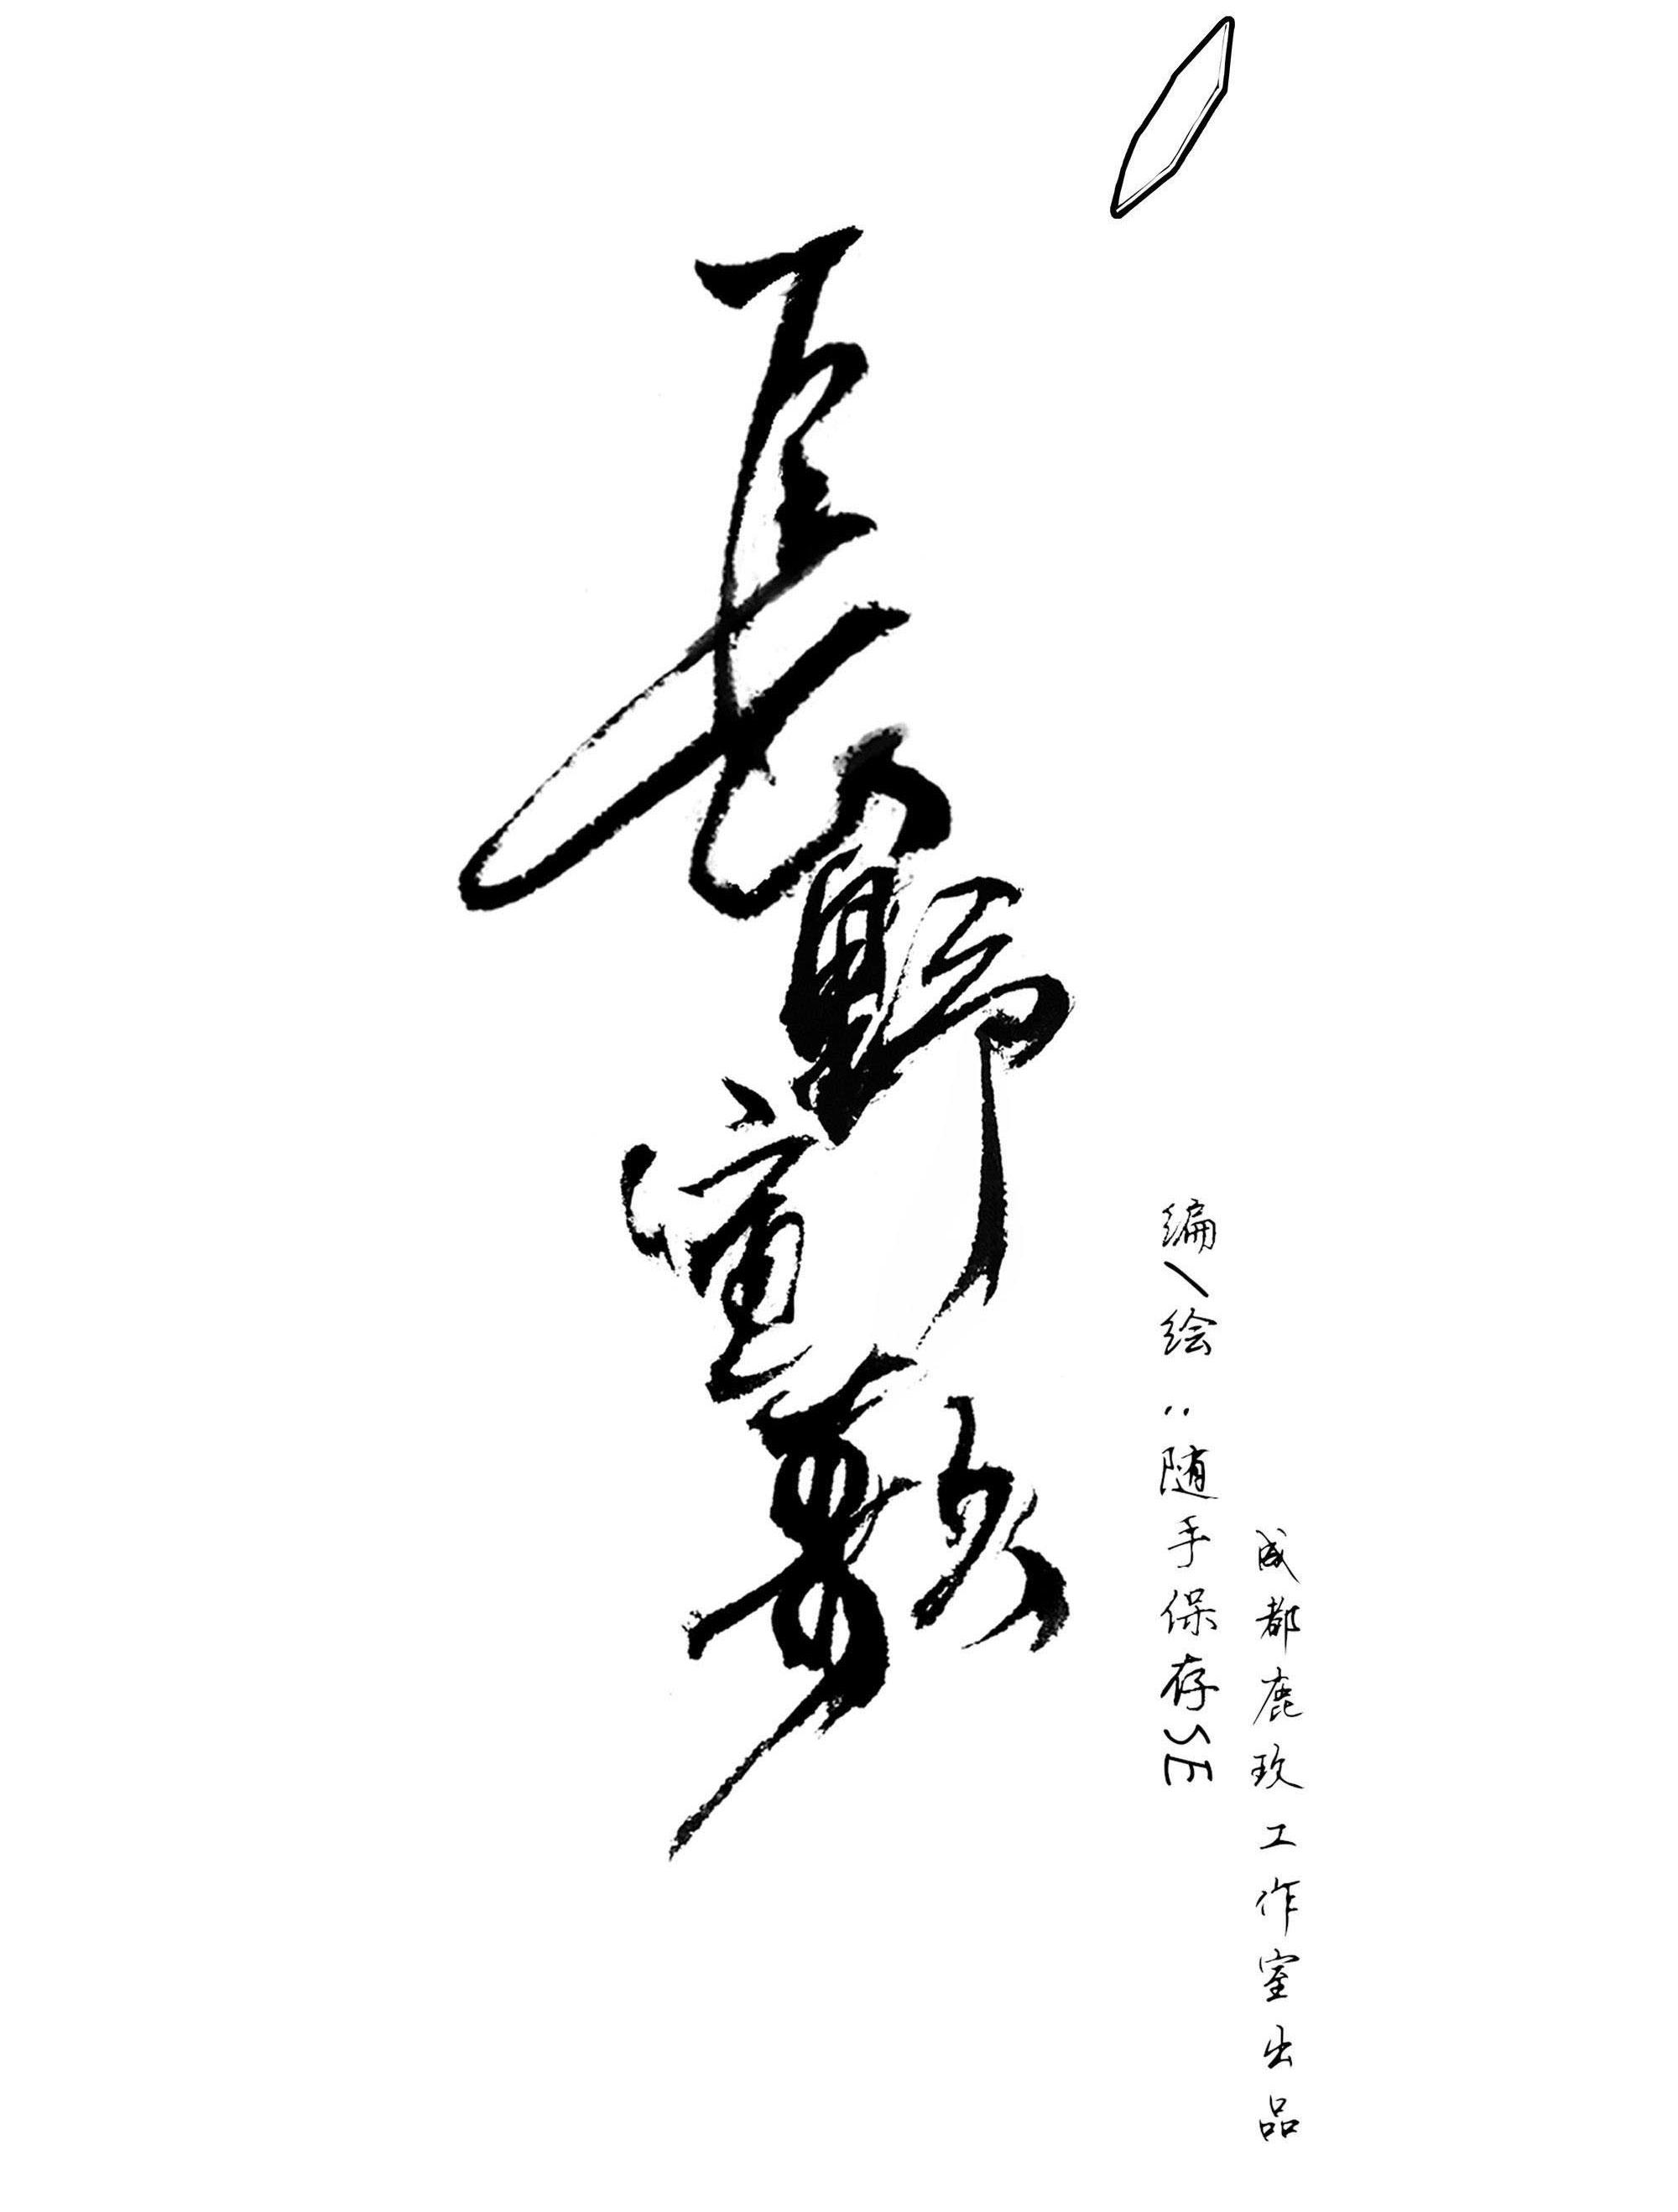 長野蜜歌
编/绘:随手保存SE
成都鹿玖工作室出品